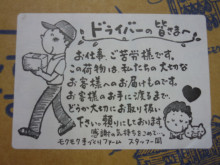 ドライバーの皆さまへ
お仕事、ご苦労様です。
この荷物は私たちの大切な
お客様へのお届けものです。
お客様のお手に渡るまで、
どうか大切にお取り扱い
下さい。頼りにしております。
感謝の気持ちをこめて…。
モクモク手づくりファーム スタッフ一同